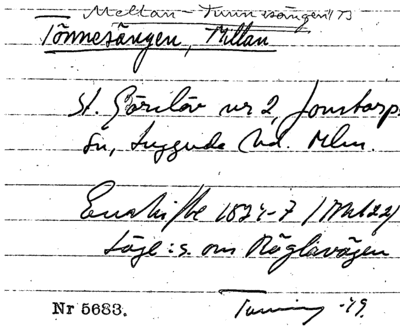 Mellan-Tunnesången(?)
Tönnesången, Mellan
St. Görslöv nr 2, Jonstorps
sn, Luggude hd. Mlm.
Enskifte 1824-7 (Akt 22)
Läge: s. om Röglevägen
Nr 5683.
-79.